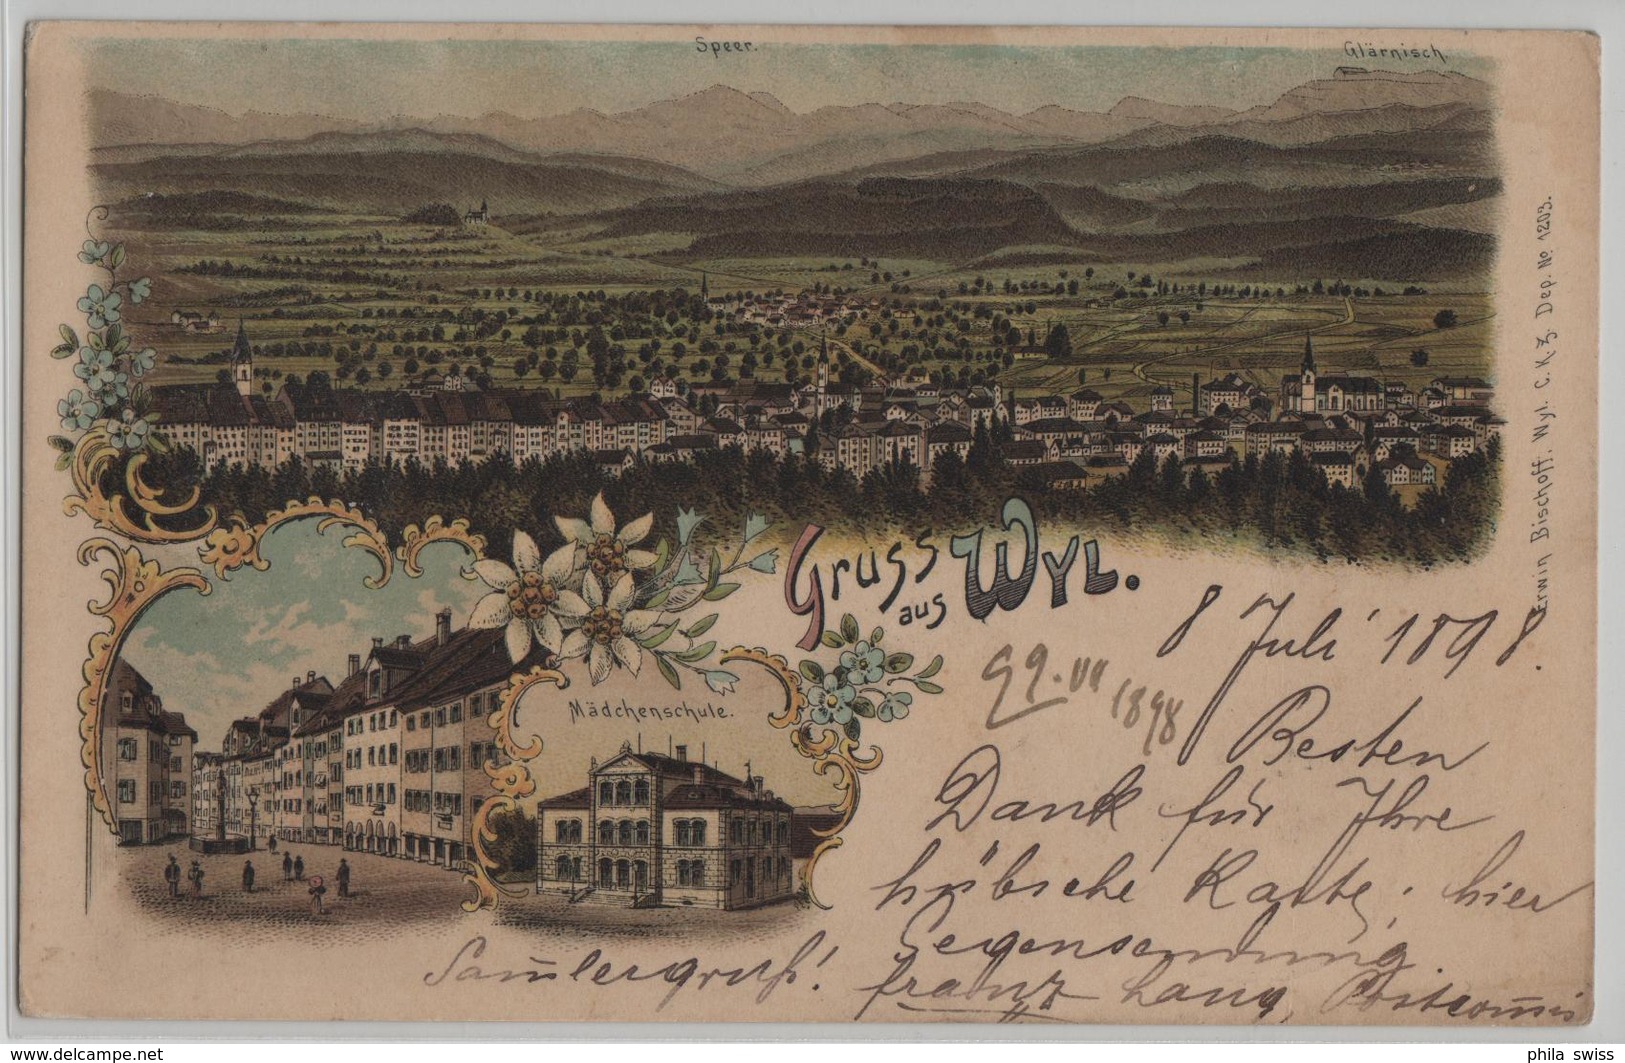 Speer.
Glärnisch.
Erwin Bischoff. Wyl. C. K. Z. Dep. No 1203.
Gruss
aus
WYL.
Mädchenschule.
8 Juli 1898.
VII
1898
Besten
Dank für Ihre
hübsche Karte; hier
Gegensendung.
Sam̅lergruß! Franz Lang, Postcom̅is
delcampe.net
phila_swiss